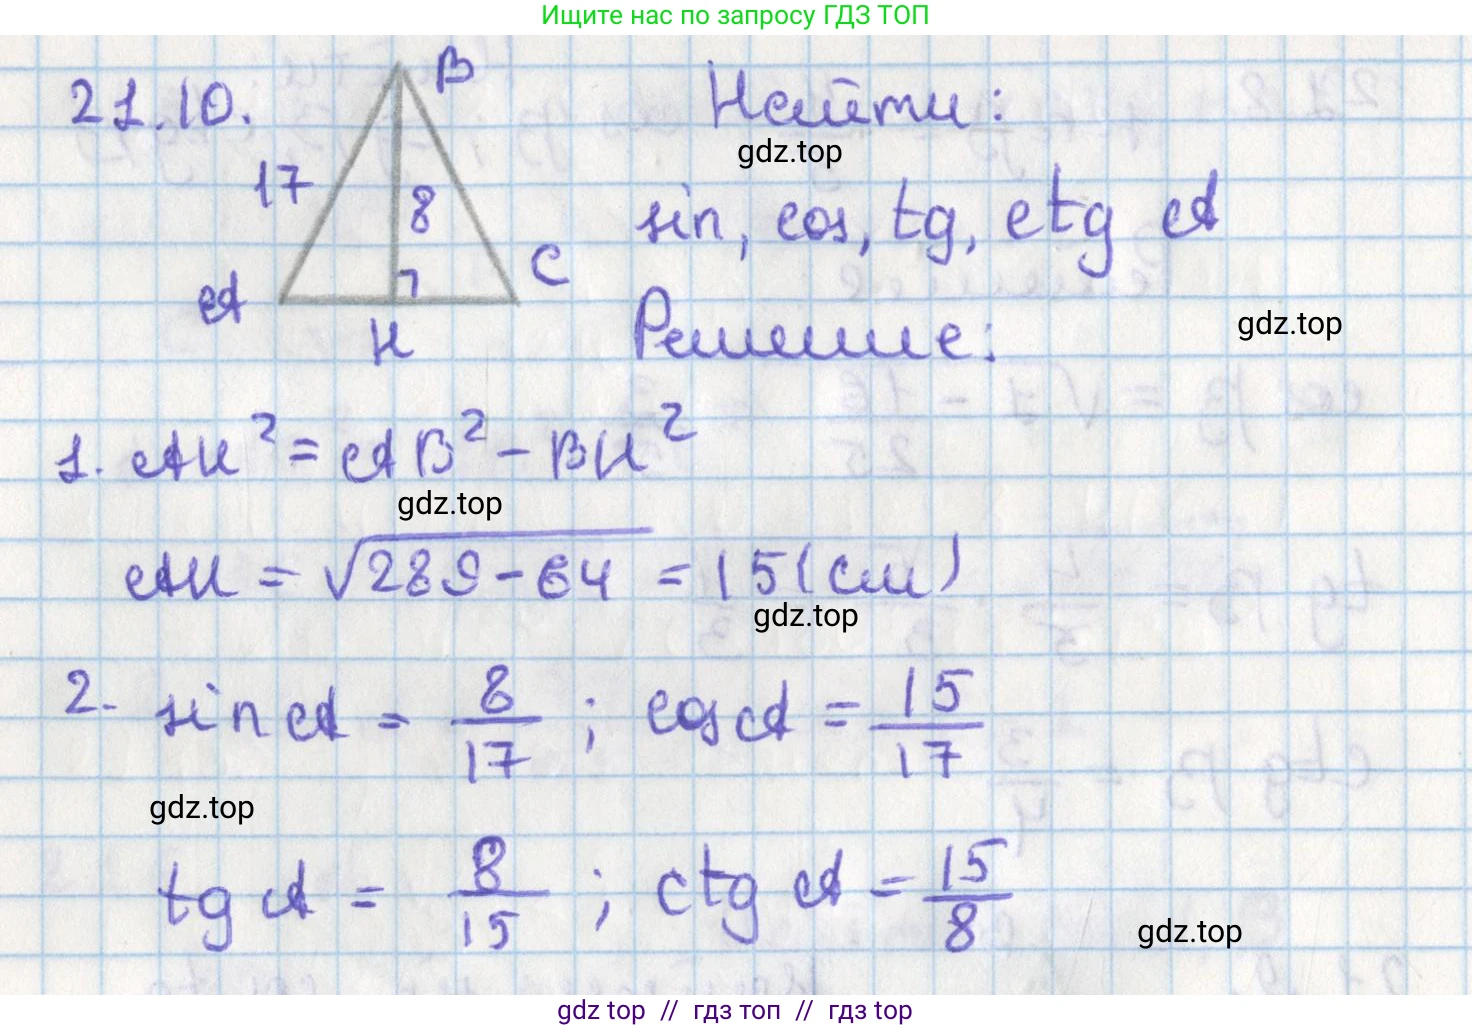 Ищите нас по запросу ГДЗ ТОП
21.10.
B
17
8
A
H
C
Найти:
gdz.top
sin, cos, tg, ctg A
gdz.top
Решение:
1. AH² = AB² - BH²
gdz.top
AH = √289-64 = 15 (см)
gdz.top
2. sin A = 8/17 ; cos A = 15/17
gdz.top
tg A = 8/15 ; ctg A = 15/8
gdz.top
gdz top // гдз топ // gdz top